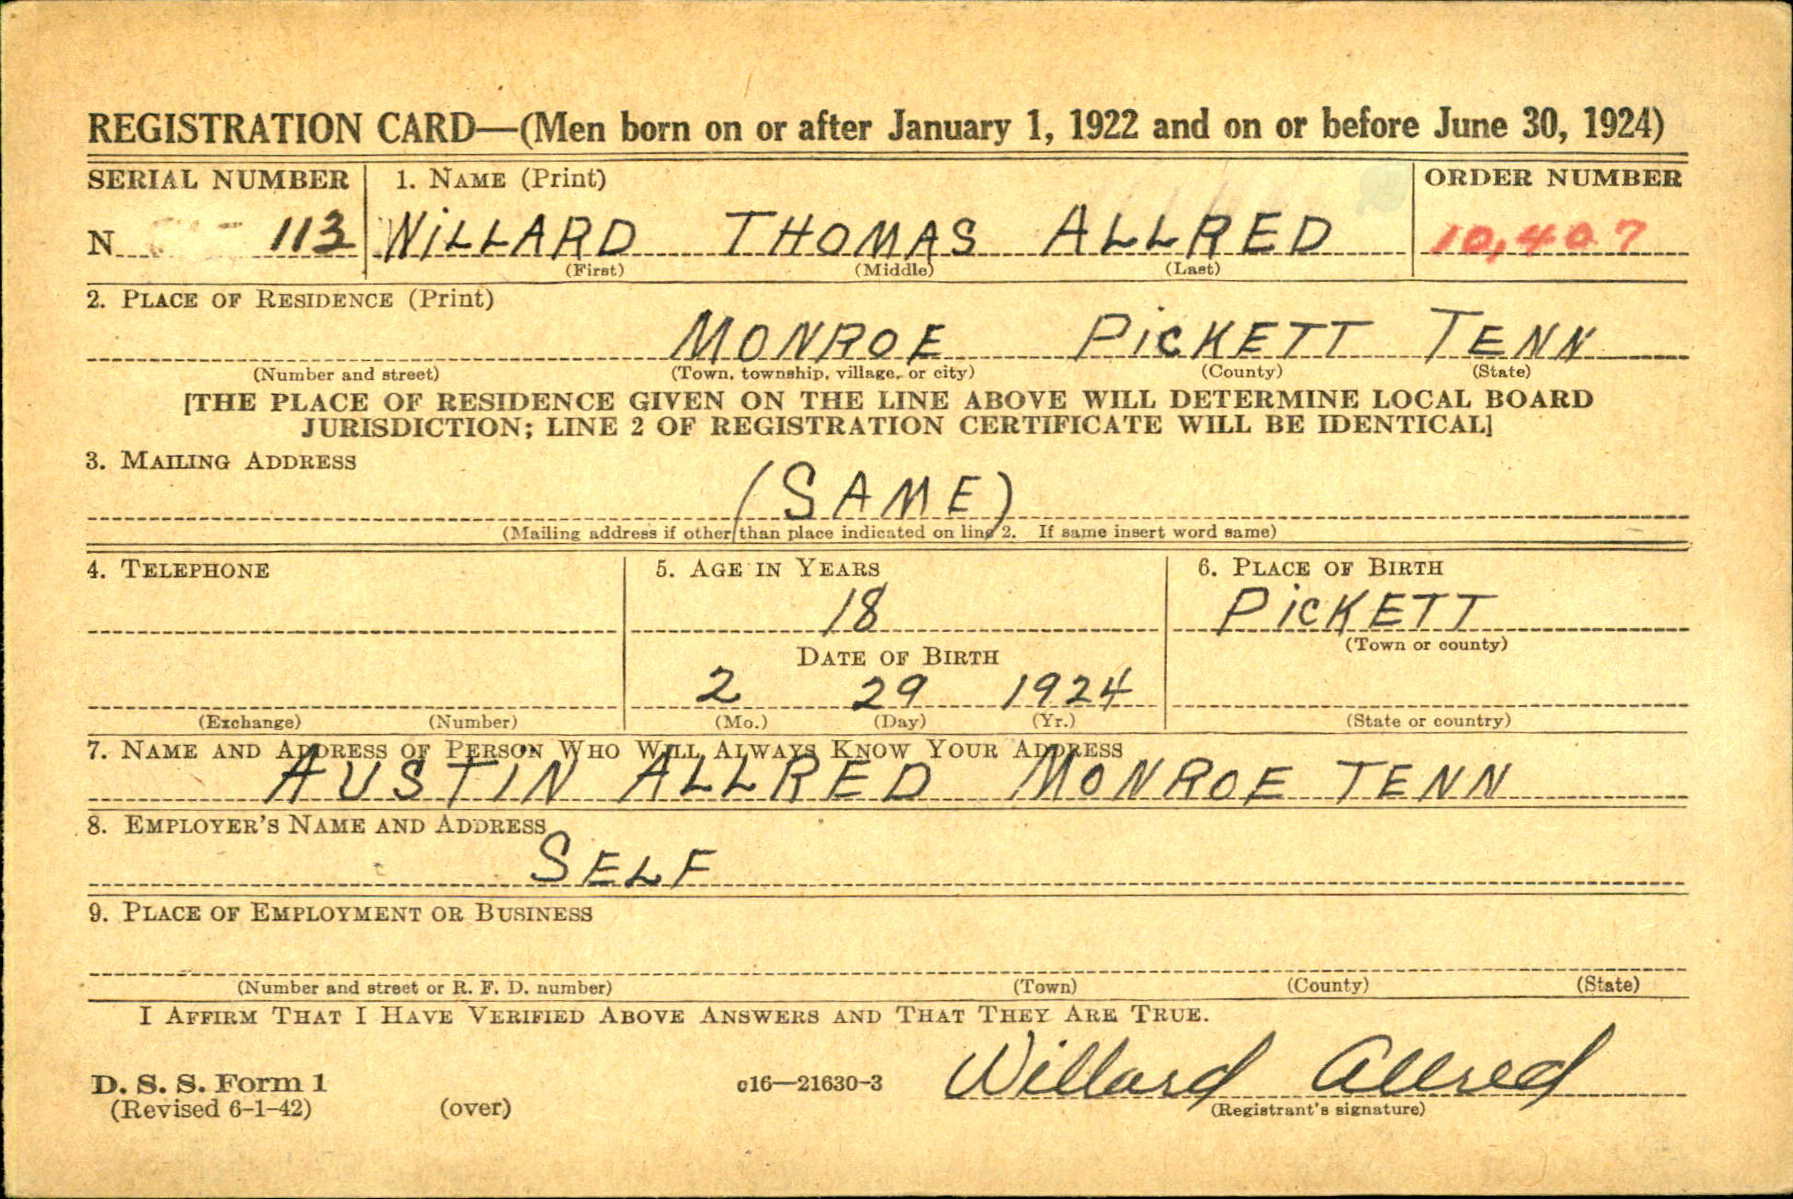 REGISTRATION CARD—(Men born on or after January 1, 1922 and on or before June 30, 1924)
SERIAL NUMBER 1. NAME (Print) ORDER NUMBER
N 113 WILLARD THOMAS ALLRED 10,407
(First) (Middle) (Last)
2. PLACE OF RESIDENCE (Print)
MONROE PICKETT TENN
(Number and street) (Town, township, village, or city) (County) (State)
[THE PLACE OF RESIDENCE GIVEN ON THE LINE ABOVE WILL DETERMINE LOCAL BOARD
JURISDICTION; LINE 2 OF REGISTRATION CERTIFICATE WILL BE IDENTICAL]
3. MAILING ADDRESS
(SAME)
(Mailing address if other than place indicated on line 2. If same insert word same)
4. TELEPHONE 5. AGE IN YEARS 6. PLACE OF BIRTH
18 PICKETT
(Town or county)
DATE OF BIRTH
2 29 1924
(Exchange) (Number) (Mo.) (Day) (Yr.) (State or country)
7. NAME AND ADDRESS OF PERSON WHO WILL ALWAYS KNOW YOUR ADDRESS
AUSTIN ALLRED MONROE TENN
8. EMPLOYER'S NAME AND ADDRESS
SELF
9. PLACE OF EMPLOYMENT OR BUSINESS
(Number and street or R. F. D. number) (Town) (County) (State)
I AFFIRM THAT I HAVE VERIFIED ABOVE ANSWERS AND THAT THEY ARE TRUE.
D. S. S. Form 1 c16—21630-3 Willard Allred
(Revised 6-1-42) (over) (Registrant's signature)